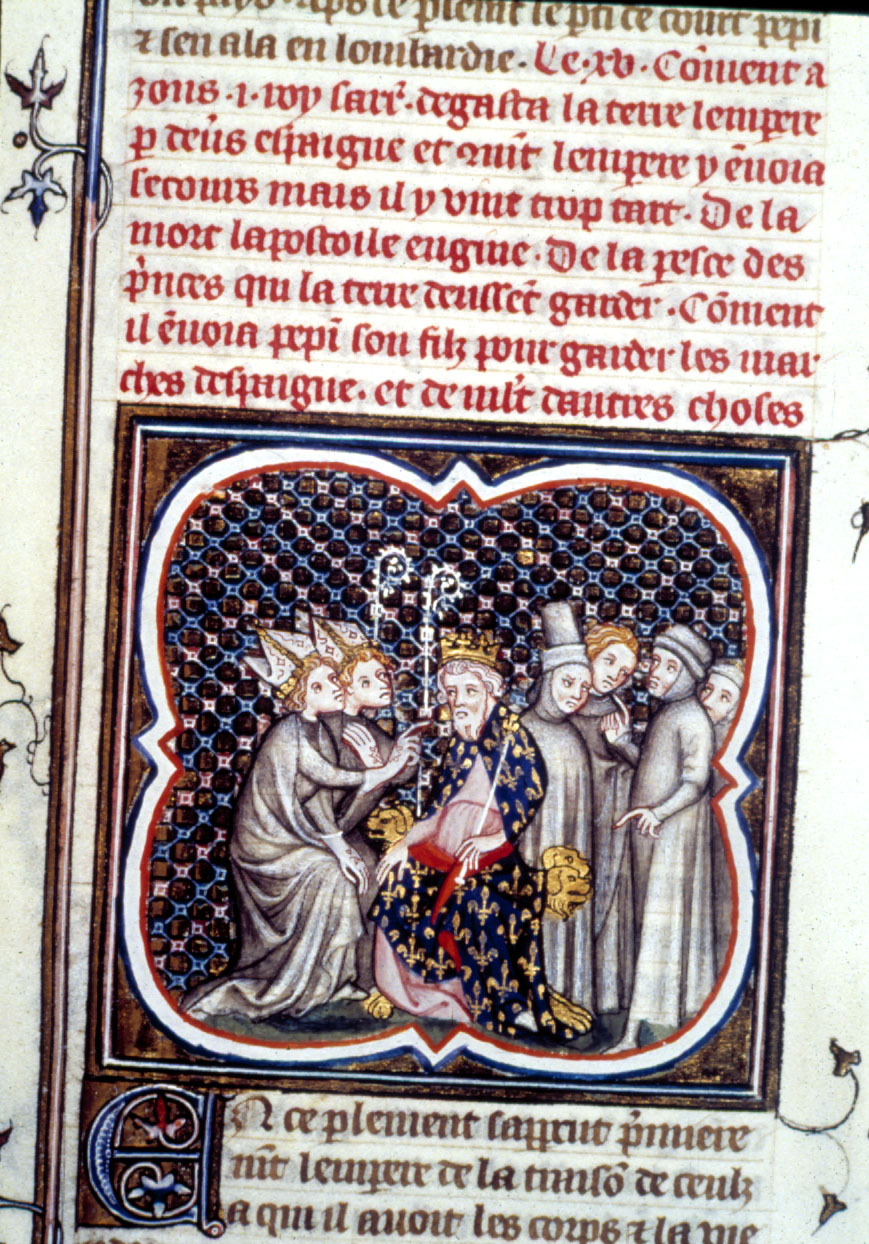 on pays. Aps ce plemt se pti de court pepī
⁊ sen ala en lombardie. Le .xv. Cōment a
zons .i. roy sarr̄. degasta la terre lempere
p deūs espaigne et ɔmt lempere y ēuoia
secours mais il y vint trop tart. De la
mort lapostoile eugine. De la peste des
p̄nces qui la terre deussēt garder. Cōment
il ēuoia pepī son filz pour garder les mar
ches despaigne. et de mlt dautres choses
EN ce plement sapparut p̄miere
mt lempere de la traisō de ceulz
a qui il auoit les corps ⁊ la vie